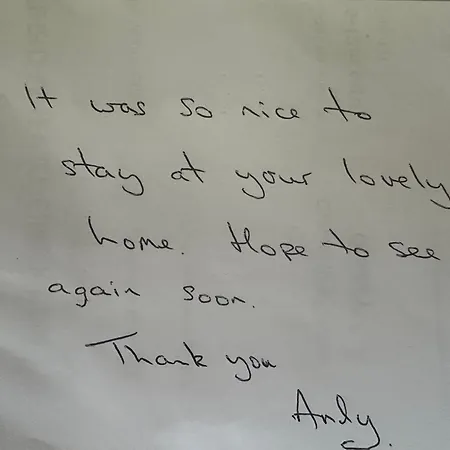 It was so nice to
stay at your lovely
home. Hope to see
again soon.
Thank you
Andy.